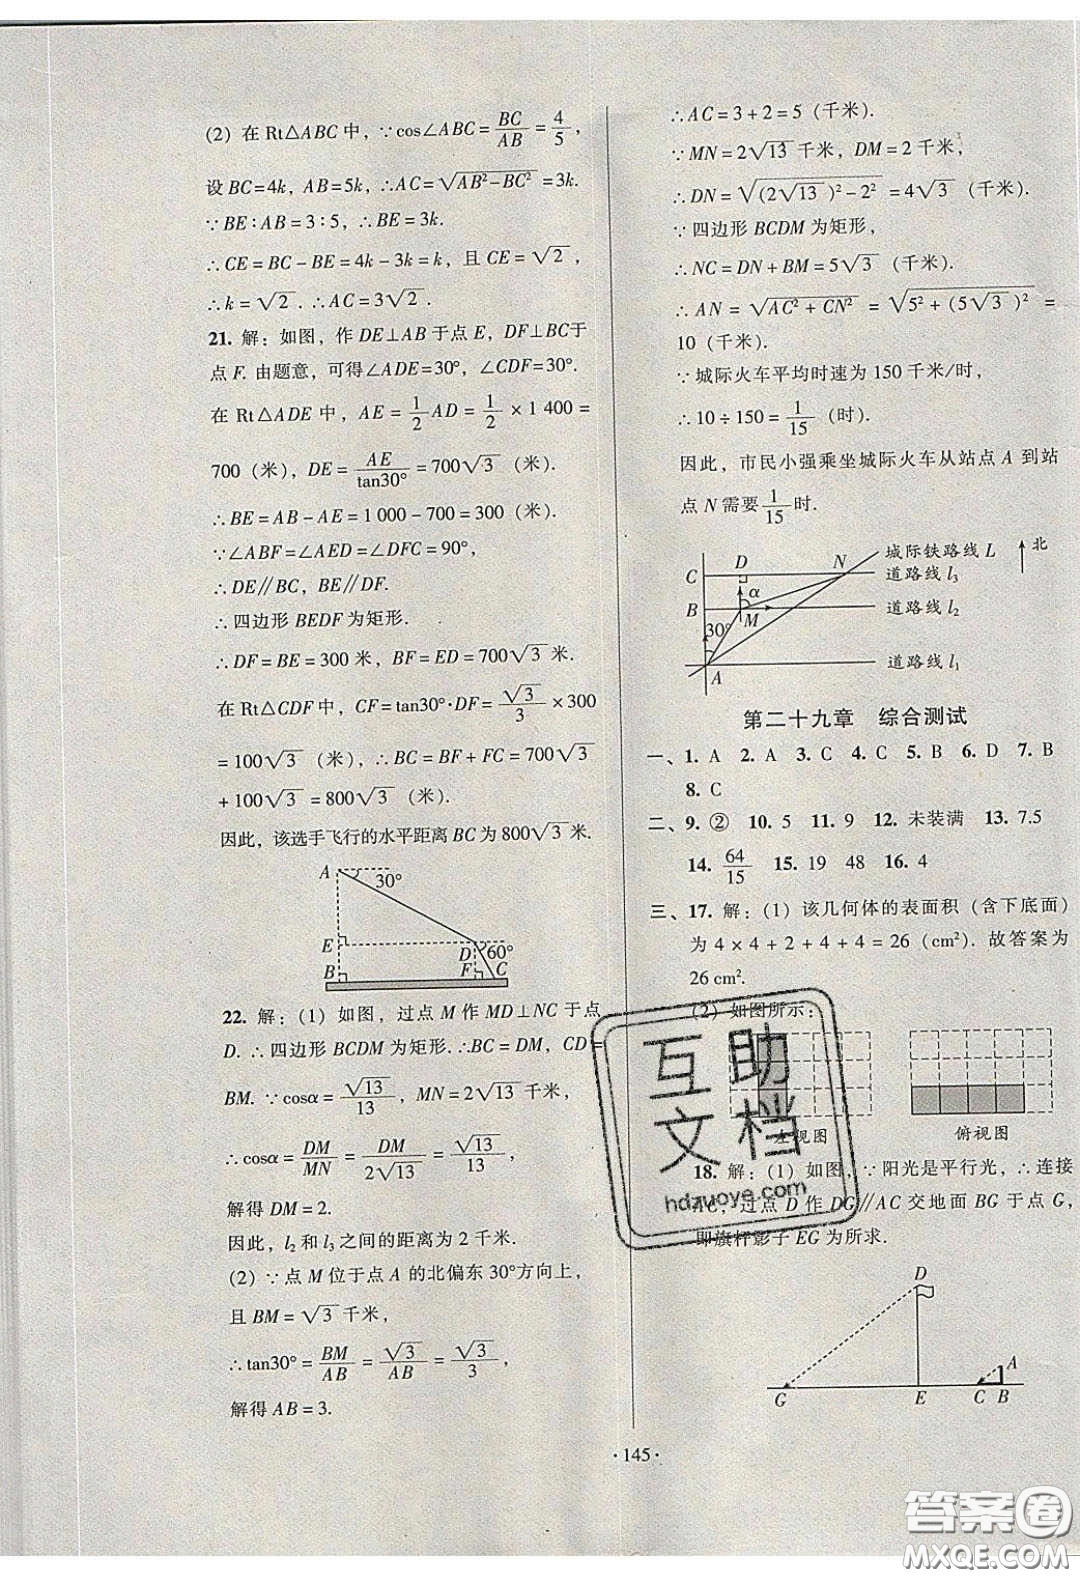 (2) 在 Rt△ABC 中，∵cos∠ABC = BC/AB = 4/5，
设 BC=4k，AB=5k，∴AC=√(AB²−BC²)=3k.
∵BE∶AB=3∶5，∴BE=3k.
∴CE=BC−BE=4k−3k=k，且 CE=√2，
∴k=√2. ∴AC=3√2.
21. 解：如图，作 DE⊥AB 于点 E，DF⊥BC于
点 F. 由题意，可得∠ADE=30°，∠CDF=30°.
在 Rt△ADE 中，AE=1/2 AD=1/2×1 400=
700（米），DE=AE/tan30°=700√3（米）.
∴BE=AB−AE=1 000−700=300（米）.
∵∠ABF=∠AED=∠DFC=90°，
∴DE∥BC，BE∥DF.
∴四边形 BEDF 为矩形.
∴DF=BE=300 米，BF=ED=700√3 米.
在 Rt△CDF 中，CF=tan30°·DF=√3/3×300
=100√3（米），∴BC=BF+FC=700√3
+100√3=800√3（米）.
因此，该选手飞行的水平距离 BC 为 800√3 米.
A 30°
E D 60°
B F C
22. 解：(1) 如图，过点 M 作 MD⊥NC 于点
D. ∴四边形 BCDM 为矩形.∴BC=DM，CD=
BM. ∵cosα=√13/13，MN=2√13 千米，
∴cosα=DM/MN=DM/2√13=√13/13，
解得 DM=2.
因此，l₂ 和 l₃ 之间的距离为 2 千米.
(2) ∵点 M 位于点 A 的北偏东 30°方向上，
且 BM=√3 千米，
∴tan30°=BM/AB=√3/AB=√3/3，
解得 AB=3.
∴AC=3+2=5（千米）.
∵MN=2√13 千米，DM=2 千米，
∴DN=√((2√13)²−2²)=4√3（千米）.
∵四边形 BCDM 为矩形，
∴NC=DN+BM=5√3（千米）.
∴AN=√(AC²+CN²)=√(5²+(5√3)²)=
10（千米）.
∵城际火车平均时速为 150 千米/时，
∴10÷150=1/15（时）.
因此，市民小强乘坐城际火车从站点 A 到站
点 N 需要 1/15 时.
D N 城际铁路线 L 北
C 道路线 l₃
α
B M 道路线 l₂
30°
A 道路线 l₁
第二十九章 综合测试
一、1. A 2. A 3. C 4. C 5. B 6. D 7. B
8. C
二、9. ② 10. 5 11. 9 12. 未装满 13. 7.5
14. 64/15 15. 19 48 16. 4
三、17. 解：(1) 该几何体的表面积（含下底面）
为 4×4+2+4+4=26（cm²）. 故答案为
26 cm².
(2) 如图所示：
左视图 俯视图
18. 解：(1) 如图，∵阳光是平行光，∴连接
AC，过点 D 作 DG∥AC 交地面 BG 于点 G，
即旗杆影子 EG 为所求.
D
A
G E C B
·145·
互助
文档
hdzuoye.com
答案圈
MXQE.COM